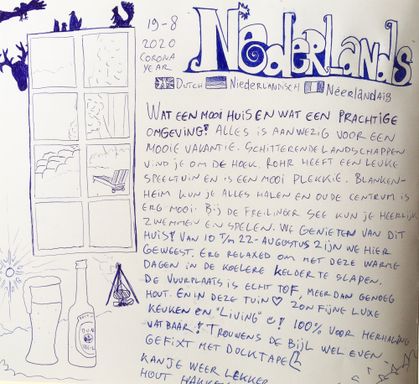 19-8
2020
CORONA
YEAR
NEDERLANDS
DUTCH NIEDERLANDISCH NÉERLANDAIS
WAT EEN MOOI HUIS EN WAT EEN PRACHTIGE
OMGEVING! ALLES IS AANWEZIG VOOR EEN
MOOIE VAKANTIE. SCHITTERENDE LANDSCHAPPEN
VIND JE OM DE HOEK. ROHR HEEFT EEN LEUKE
SPEELTUIN EN IS EEN MOOI PLEKKIE. BLANKEN-
HEIM KUN JE ALLES HALEN EN OUDE CENTRUM IS
ERG MOOI. BIJ DE FREILINGER SEE KUN JE HEERLIJK
ZWEMMEN EN SPELEN. WE GENIETEN VAN DIT
HUIS! VAN 10 T/M 22-AUGUSTUS ZIJN WE HIER
GEWEEST. ERG RELAXED OM MET DEZE WARME
DAGEN IN DE KOELERE KELDER TE SLAPEN.
DE VUURPLAATS IS ECHT TOF, MEER DAN GENOEG
HOUT. EN IN DEZE TUIN ♡ ZO'N FIJNE LUXE
KEUKEN EN "LIVING" 100% VOOR HERHALING
VATBAAR! TROUWENS DE BIJL WEL EVEN
GEFIXT MET DOCKTAPE
KAN JE WEER LEKKER
HOUT HAKKEN